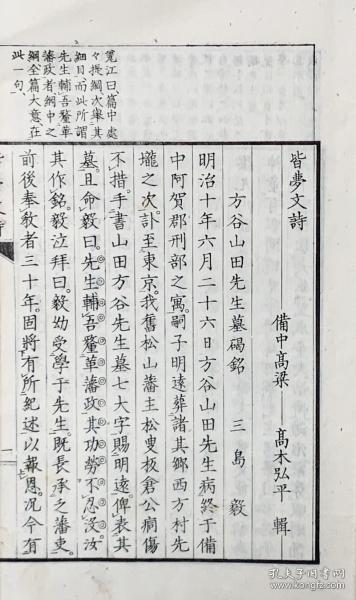 皆夢文詩
備中髙粱 髙木弘平 輯
方谷山田先生墓碣銘 三島毅
明治十年六月二十六日方谷山田先生病終于備
中阿賀郡刑部之寓嗣子明遠葬諸其鄉西方村先
壠之次訃至東京我舊松山藩主松叟板倉公痌傷
不措手書山田方谷先生墓七大字賜明遠俾表其
墓且命毅曰先生輔吾釐革藩政其功勞不忍沒汝
其作銘毅泣拜曰毅幼受學于先生既長承乏藩吏
前後奉教者三十年固將有所紀述以報恩况今有
寬江曰篇中處
々提綱次舉其
細目而此所謂
先生輔吾釐革
藩政者綱中之
綱全篇大意在
此一句
孔夫子旧书网